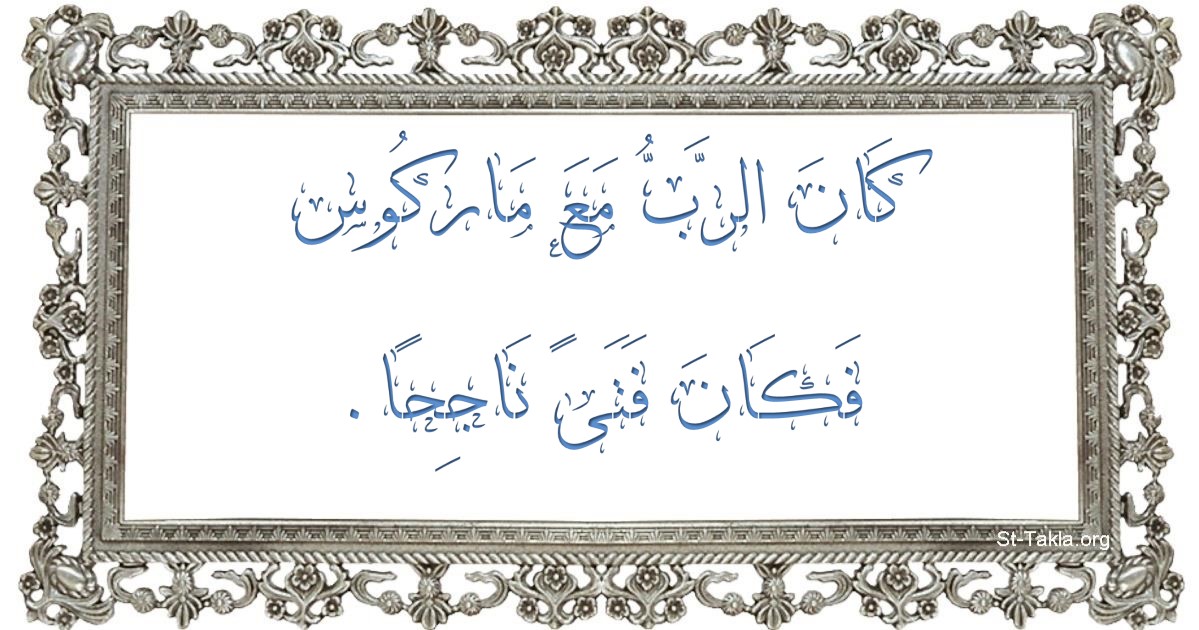 كَانَ الرَّبُّ مَعَ مَاركُوس
فَكَانَ فَتَىً نَاجِحًا .
St-Takla.org